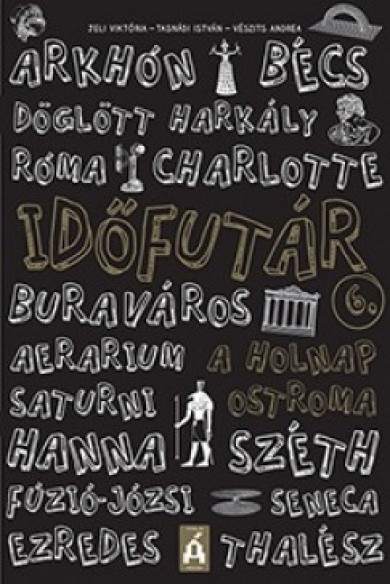 JELI VIKTÓRIA – TASNÁDI ISTVÁN – VÉSZITS ANDREA
ARKHÓN BÉCS
DÖGLÖTT HARKÁLY
RÓMA CHARLOTTE
IDŐFUTÁR
BURAVÁROS 6.
AERARIUM A HOLNAP
SATURNI OSTROMA
HANNA SZÉTH
FÚZIÓ-JÓZSI SENECA
EZREDES Á THALÉSZ